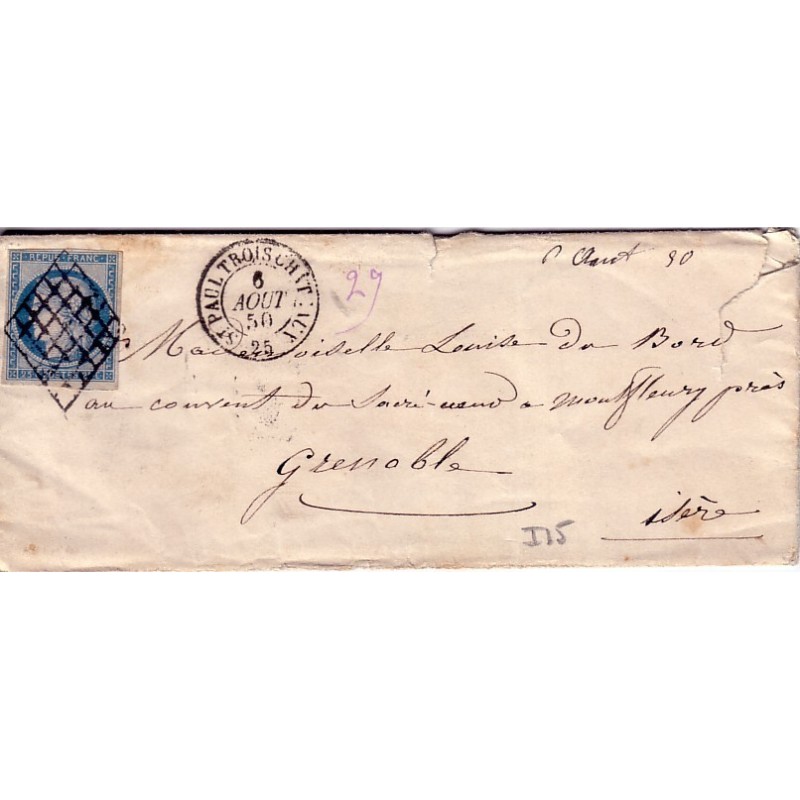 REPUB·FRANC·
ST PAUL TROIS CHAT
6
AOUT
50
25
29
Aout 50
Mademoiselle Louise du Bord
au couvent du Sacré-cœur a Montfleury près
Grenoble
isère
I15